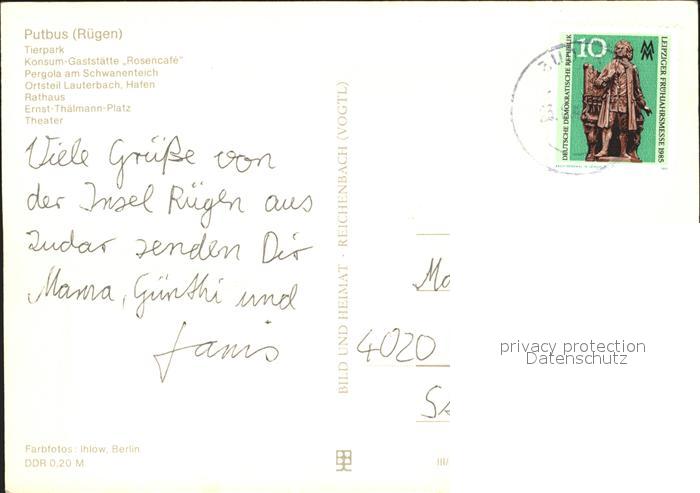 Putbus (Rügen)
Tierpark
Konsum-Gaststätte „Rosencafé"
Pergola am Schwanenteich
Ortsteil Lauterbach, Hafen
Rathaus
Ernst-Thälmann-Platz
Theater
Viele Grüße von
der Insel Rügen aus
Zudar senden Dir
Mama, Günthi und
Janis
Farbfotos: Ihlow, Berlin
DDR 0,20 M
BILD UND HEIMAT · REICHENBACH (VOGTL)
III/
DEUTSCHE DEMOKRATISCHE REPUBLIK
10
LEIPZIGER FRÜHJAHRSMESSE 1985
4020
privacy protection
Datenschutz